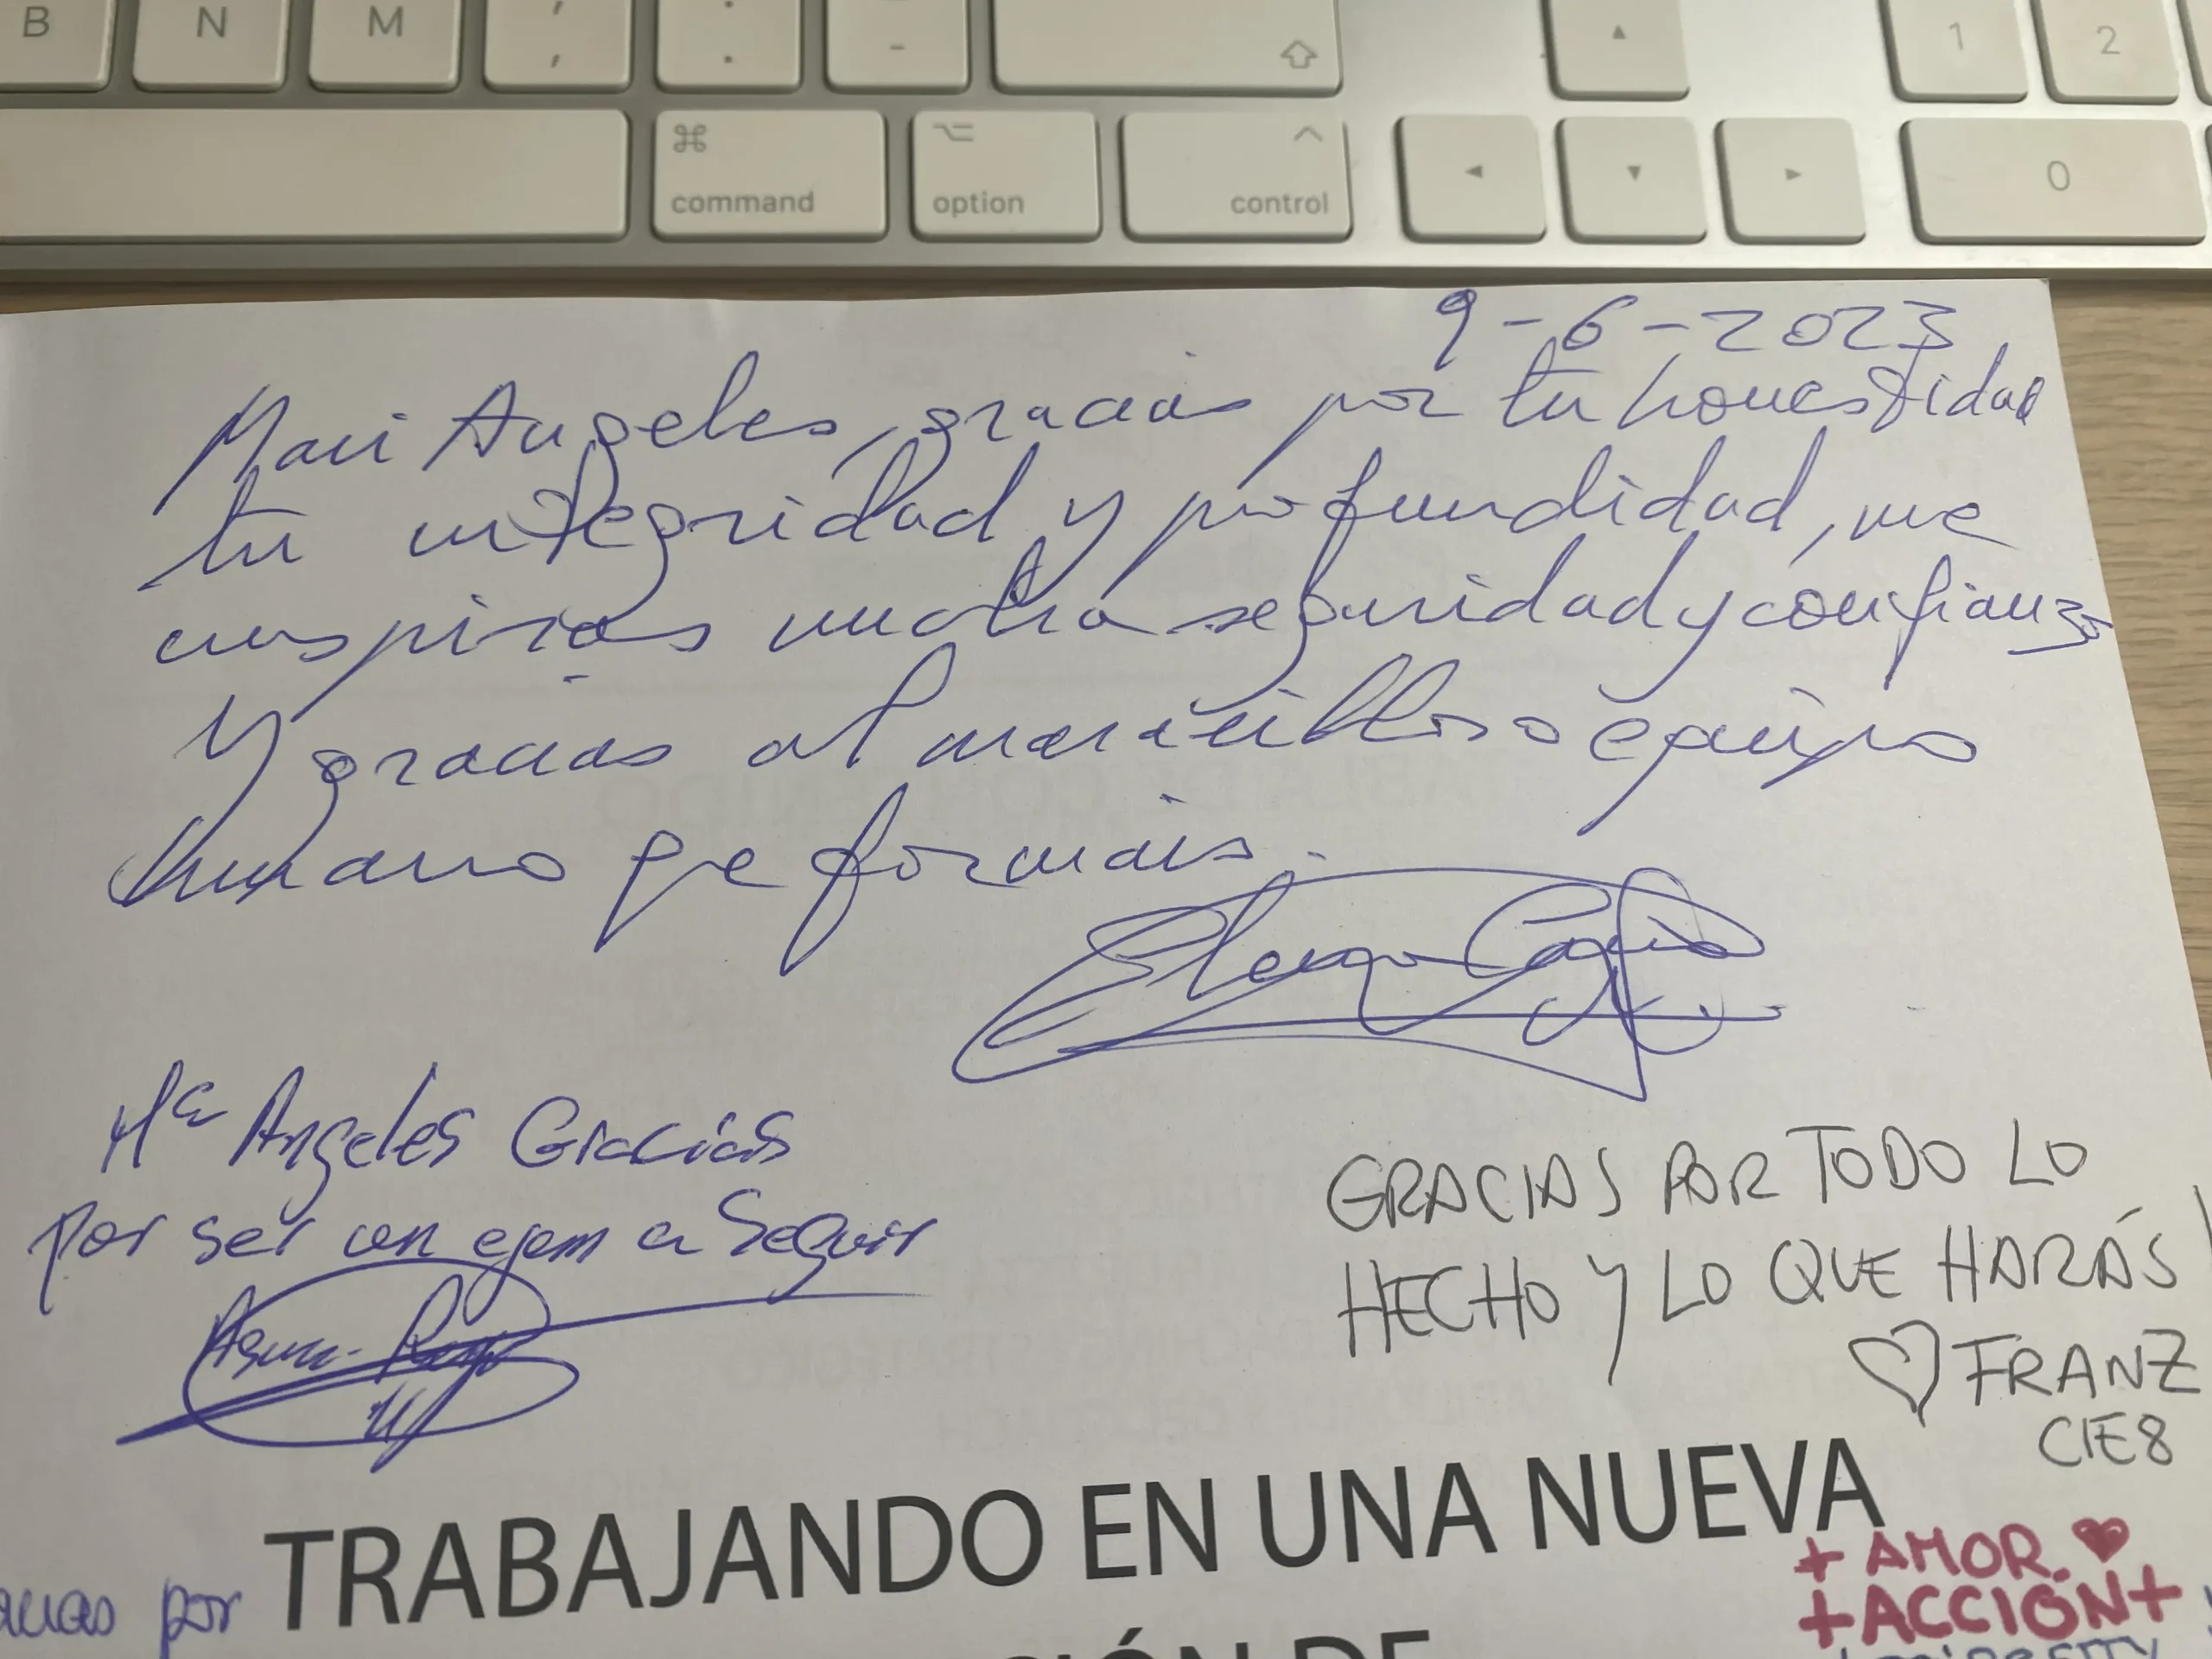 B N M , ; . : - _
1 2
⌘ command
⌥ option
^ control
0
9-6-2023
Mari Angeles, gracias por tu honestidad
tu integridad y profundidad, me
inspiras mucha seguridad y confianza
Y gracias al maravilloso equipo
humano qe formais.
Mª Angeles Gracias
por ser un ejem a Seguir
GRACIAS POR TODO LO
HECHO Y LO QUE HARÁS
♡ FRANZ
CIE8
TRABAJANDO EN UNA NUEVA
+ AMOR. ♥
+ACCIÓN+
por
DE